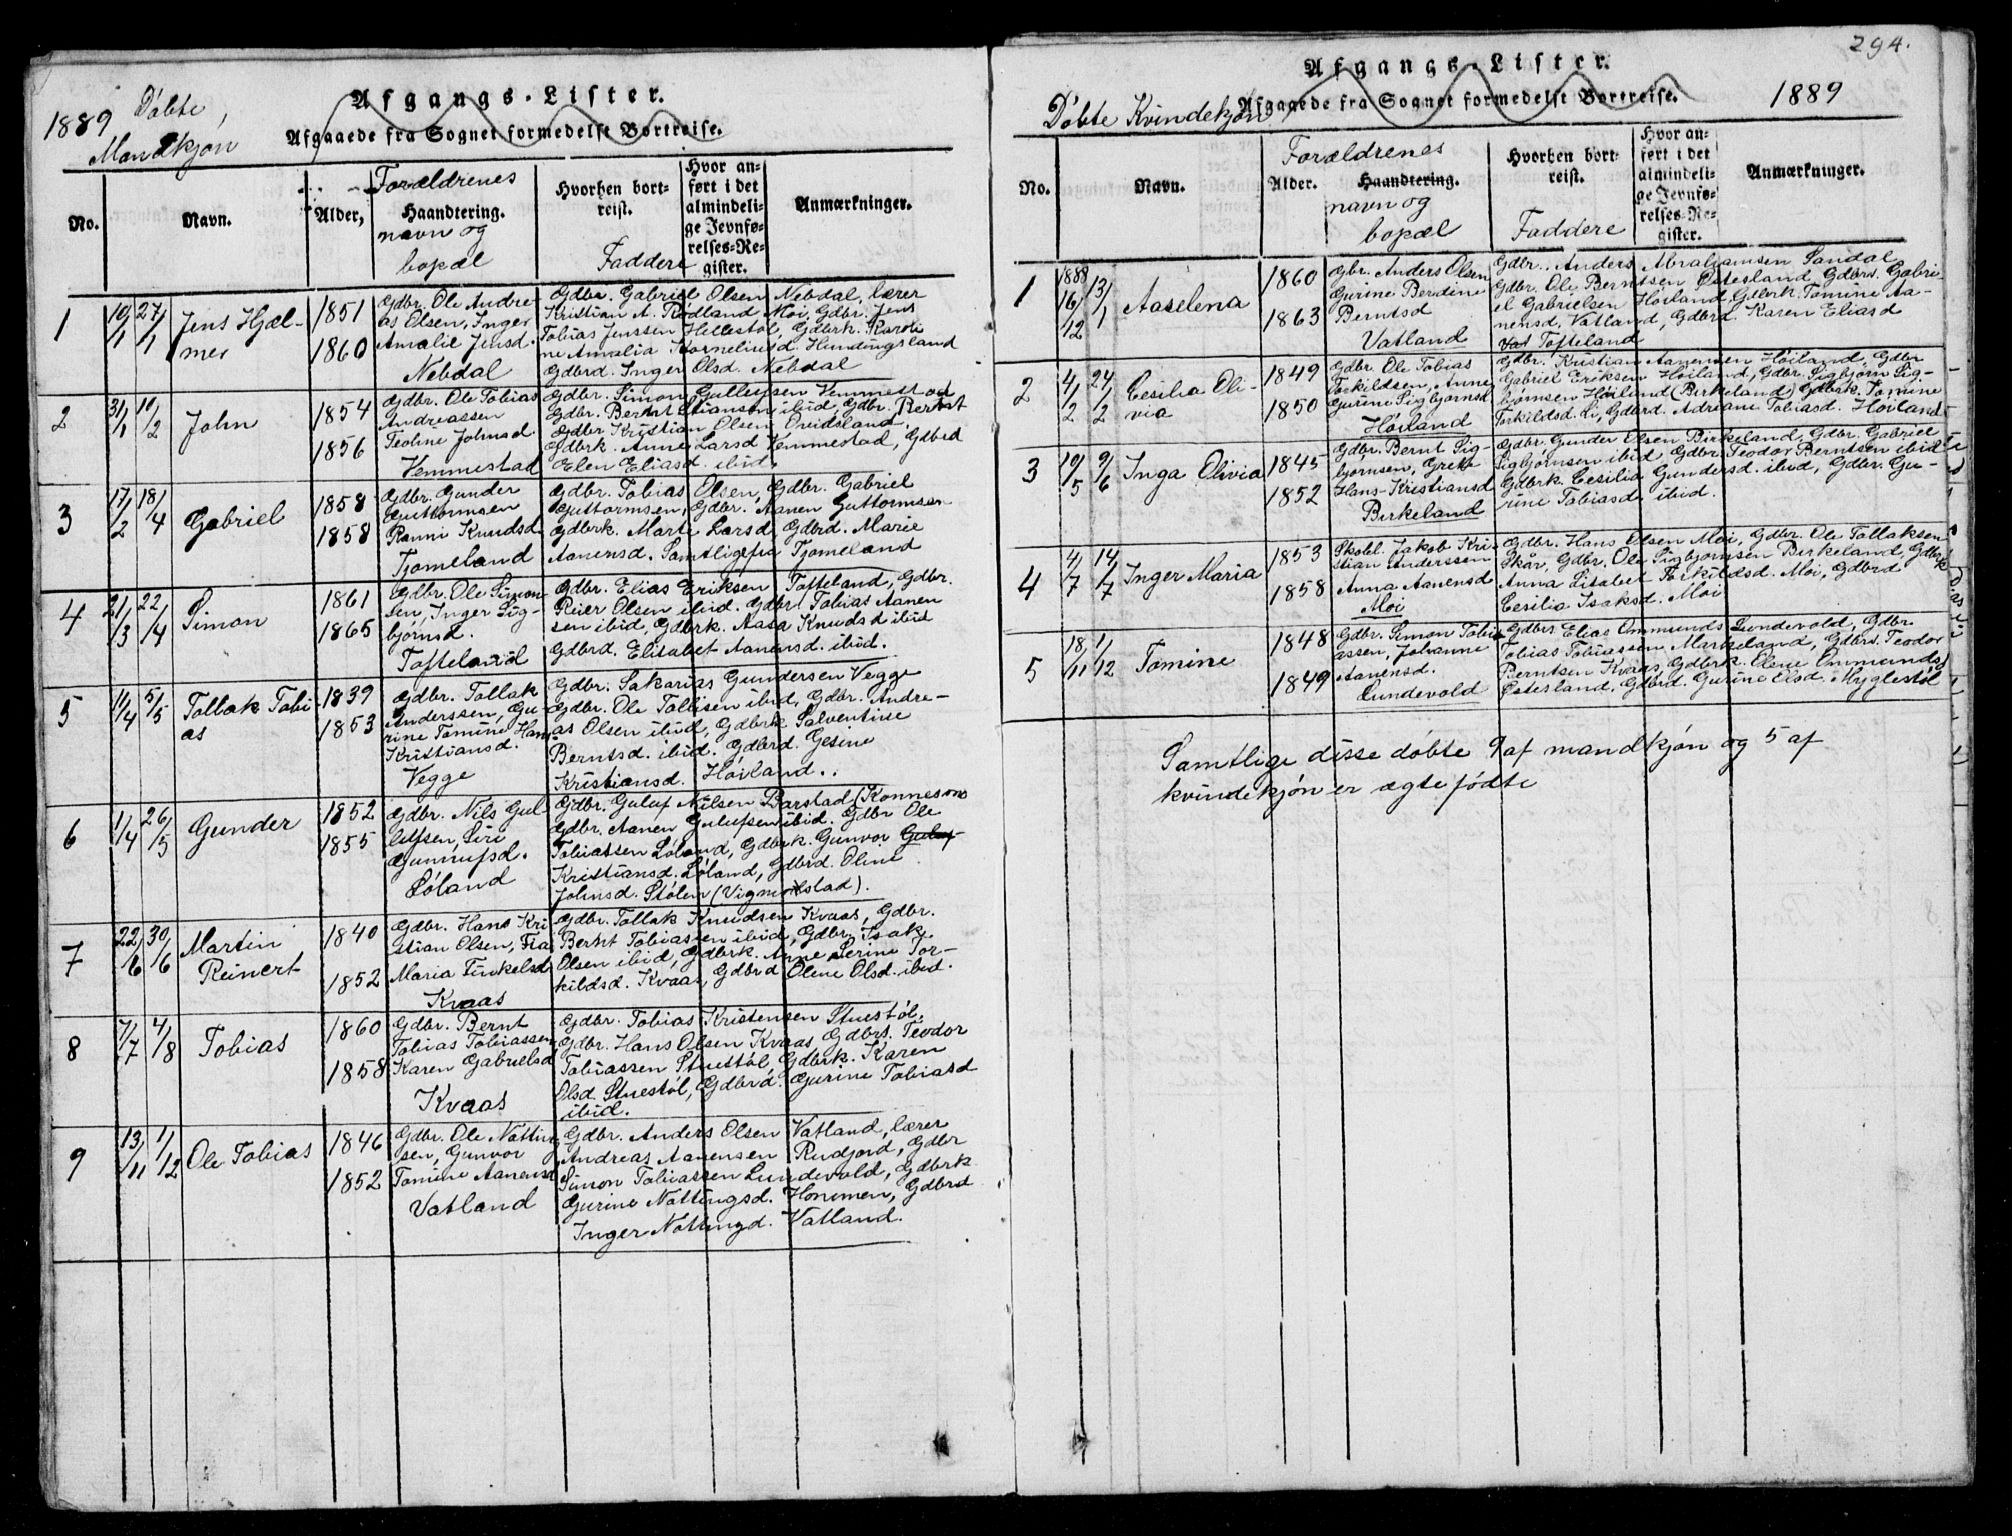 1889 Døbte,
Mandkjøn
Afgangs-Lister.
Afgaaede fra Sognet formedelst Bortreise.
No.
Navn.
Alder,
Forældrenes
Haandtering.
navn og
bopæl
Hvorhen bort-
reist.
Faddere
Hvor an-
ført i det
almindeli-
ge Jevnfø-
relses-Re-
gister.
Anmærkninger.
1
10/1 27/1
Jens Hjæl-
mer
1851
1860
Gdbr. Ole Andre-
as Olsen, Inger
Amalie Jensd.
Nebdal
Gdbr. Gabriel Olsen Nebdal, lærer
Kristian A. Rødland Moi, Gdbr. Jens
Tobias Jenssen Hellestøl, Gdbrk. Karoli
ne Amalia Korneliusd Hundingsland
Gdbrd. Inger Olsd. Nebdal
2
31/1 10/2
John
1854
1856
Gdbr. Ole Tobias
Andreassen
Teoline Johnsd.
Vemmestad
Gdbr. Simon Gulleifsen Vemmestad
Gdbr. Bernt Stiansen ibid, Gdbr. Bernt
Gdbr Kristian Olsen Ovidsland,
Gdbrk. Anne Larsd Vemmestad, Gdbrd
Elen Eliasd. ibid.
3
17/2 18/4
Gabriel
1858
1858
Gdbr. Gunder
Guttormsen
Ranni Knudsd
Tjomeland
Gdbr. Tobias Olsen, Gdbr. Gabriel
Guttormsen, Gdbr. Aanen Guttormsen
Gdbrk. Marte Larsd, Gdbrd. Marie
Aanensd. Samtlige fra Tjomeland
4
21/3 22/4
Simon
1861
1865
Gdbr. Ole Simon-
sen, Inger Sig-
bjørnsd.
Tofteland
Gdbr. Elias Eriksen Tofteland, Gdbr.
Reier Olsen ibid. Gdbr. Tobias Aanen
sen ibid, Gdbrk. Aasa Knudsd ibid
Gdbrd. Elisabet Aanensd. ibid.
5
11/4 5/5
Tollak Tobi-
as
1839
1853
Gdbr. Tollak
Anderssen, Gu-
rine Tomine Hans
Kristiansd.
Vegge
Gdbr. Sakarias Gundersen Vegge
Gdbr. Ole Tollisen ibid, Gdbr. Andre-
as Olsen ibid, Gdbrk Salventine
Berntsd. ibid. Gdbrd. Gesine
Kristiansd. Høiland.
6
1/4 26/5
Gunder
1852
1855
Gdbr. Nils Gul-
lufsen, Siri
Gunnufsd.
Løland
Gdbr. Guluf Nilsen Barstad (Konnesm
Gdbr. Aanen Gulufsen ibid. Gdbr Ole
Tobiassen Løland, Gdbrk. Gunvor Guluf-
Kristiansd. Løland, Gdbrd. Oline
Johnsd. Stølen (Vigmostad).
7
22/6 30/6
Martin
Reinert
1840
1852
Gdbr. Hans Kri
stian Olsen, Fia
Maria Tinkelsd
Kvaas
Gdbr. Tollak Knudsen Kvaas, Gdbr.
Bernt Tobiassen ibid, Gdbr. Isak
Olsen ibid, Gdbrk. Anne Serine Tor-
kildsd. Kvaas, Gdbrd Olene Olsd. ibid.
8
7/7 4/8
Tobias
1860
1858
Gdbr. Bernt
Tobias Tobiassen
Karen Gabrielsd
Kvaas
Gdbr. Tobias Kristensen Stuestøl,
Gdbr. Hans Olsen Kvaas Gdbrs. Teodor
Tobiassen Stuestøl, Gdbrk. Karen
Olsd. Stuestøl, Gdbrd. Gurine Tobiasd
ibid.
9
13/11 1/12
Ole Tobias
1846
1852
Gdbr. Ole Natting
sen, Gunvor
Tomine Aanensd
Vatland
Gdbr. Anders Olsen Vatland, lærer
Andreas Aanensen Rudjord, Gdbr
Simon Tobiassen Lundevold, Gdbrk
Gurine Nattingsd. Honemen, Gdbrd
Inger Nattingd. Vatland.
294.
Afgangs-Lister.
Afgaaede fra Sognet formedelst Bortreise.
Døbte Kvindekjøn
1889
No.
Navn.
Alder.
Forældrenes
Haandtering.
navn og
bopæl
Hvorhen bort-
reist.
Faddere
Hvor an-
ført i det
almindeli-
ge Jevnfø-
relses-Re-
gister.
Anmærkninger.
1
1888
16/12 13/1
Aaselena
1860
1863
Gbr. Anders Olsen
Gurine Berdine
Berntsd
Vatland
Gdbr. Anders Abrahamsen Sandal
Gdbr. Ole Berntsen Østesland, Gdbrs. Gabri-
el Gabrielsen Høiland, Gdbrk. Tomine Aa-
nensd. Vatland, Gdbrd. Karen Eliasd
Vat Tofteland
2
4/2 24/2
Cesilia Oli-
via
1849
1850
Gdbr. Ole Tobias
Torkildsen, Anne
Gurine Sigbjørnsd
Høiland
Gdbr. Kristian Aanensen Høiland, Gdbr
Gabriel Eriksen Høiland, Gdbr. Sigbjørn Sig-
bjørnsen Høiland (Birkeland) Gdbrk. Tomine
Torkildsd. do, Gdbrd. Adriane Tobiasd. Høiland
3
10/5 9/6
Inga Olivia
1845
1852
Gdbr. Bernt Sig-
bjørnsen, Grete
Hans-Kristiansd
Birkeland
Gdbr. Gunder Olsen Birkeland, Gdbr. Gabriel
Sigbjørnsen ibid Gdbr. Teodor Berntsen ibid
Gdbrk. Cesilia Gundersd. ibid, Gdbr. Gu-
rine Tobiasd. ibid.
4
4/7 14/7
Inger Maria
1853
1858
Skolel. Jakob Kri-
stian Anderssen
Anna Aanensd
Moi
Gdbr. Hans Olsen Moi, Gdbr. Ole Tollaksen
Skår, Gdbr. Ole Sigbjørnsen Birkeland, Gdbrk
Anna Lisabet Torkildsd. Moi, Gdbrd
Cesilia Isaksd. Moi
5
18/11 1/12
Tomine
1848
1849
Gdbr. Simon Tobi-
assen, Johanne
Aanensd.
Lundevold
Gdbrs Elias Ommunds Lundevold, Gdbr.
Tobias Tobiassen Markeland, Gdbrs. Teodor
Berntsen Kvaas, Gdbrk. Olene Ommundsd
Østesland, Gdbrd. Gurine Elsd. Myglestøl
Samtlige disse døbte 9 af mandkjøn og 5 af
kvindekjøn er ægtefødte